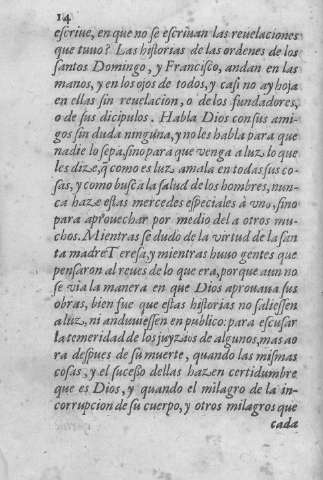 14
escriue, en que no se escriuan las reuelaciones
que tuuo? Las historias de las ordenes de los
santos Domingo, y Francisco, andan en las
manos, y en los ojos de todos, y casi no ay hoja
en ellas sin reuelacion, o de los fundadores,
o de sus dicipulos. Habla Dios con sus ami-
gos sin duda ninguna, y no les habla para que
nadie lo sepa, sino para que venga a luz lo que
les dize, q̃ como es luz amala en todas sus co-
sas, y como busca la salud de los hombres, nun-
ca haze estas mercedes especiales à vno, sino
para aprouechar por medio del a otros mu-
chos. Mientras se dudo de la virtud de la san
ta madre Teresa, y mientras huuo gentes que
pensaron al reues de lo que era, porque aun no
se via la manera en que Dios aprouaua sus
obras, bien fue que estas historias no saliessen
a luz, ni anduuiessen en publico: para escusar
la temeridad de los juyzios de algunos, mas ao
ra despues de su muerte, quando las mismas
cosas, y el sucesso dellas hazen certidumbre
que es Dios, y quando el milagro de la in-
corrupcion de su cuerpo, y otros milagros que
cada